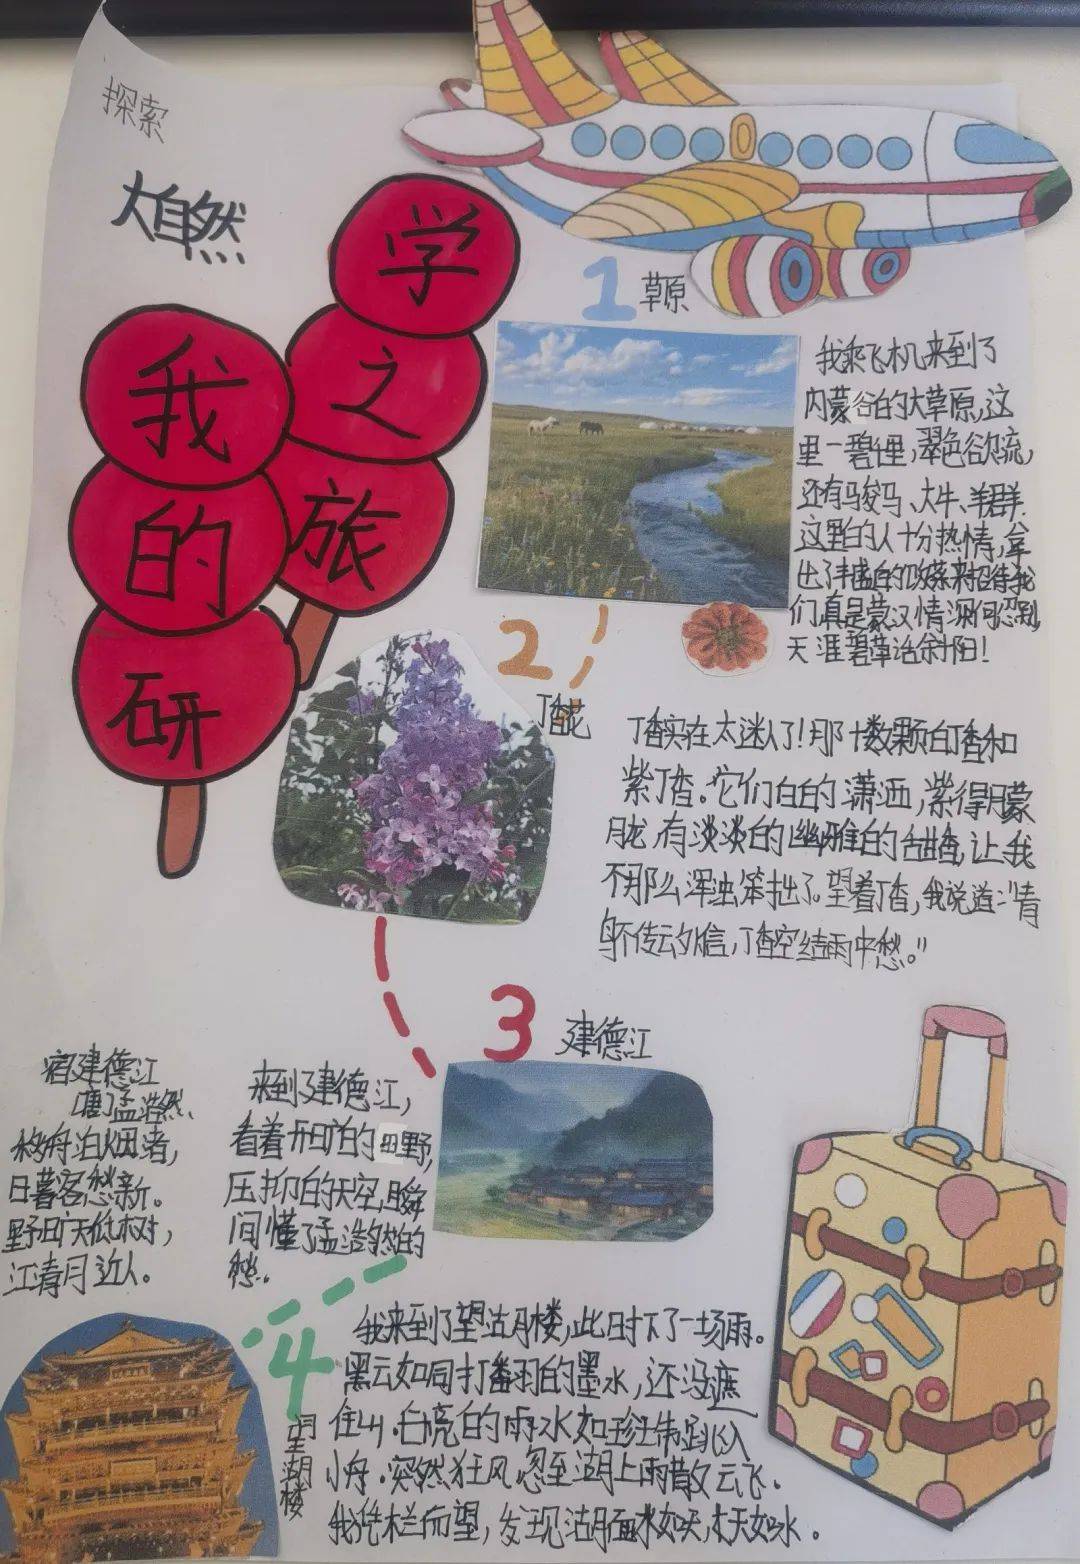 探索
大自然
我的研
学之旅
1 草原
我乘飞机来到了
内蒙谷的大草原,这
里一碧千里,翠色欲流,
还有马骏马、大牛、羊群.
这里的人十分热情,拿
出了丰盛的奶茶来招待我
们真是蒙汉情深何忍别,
天涯碧草话斜阳!
2
丁香花
丁香实在太迷人了!那十数颗白丁香和
紫丁香.它们白的潇洒,紫得朦
胧,有淡淡的幽雅的甜香,让我
不那么浑浊笨拙了。望着丁香,我说道:"青
鸟不传云外信,丁香空结雨中愁。"
3 建德江
宿建德江
唐 孟浩然
移舟泊烟渚,
日暮客愁新。
野旷天低树,
江清月近人。
来到了建德江,
看着开旷的田野,
压抑的天空,瞬
间懂了孟浩然的
愁。
4
望湖楼
我来到了望湖楼,此时下了一场雨。
黑云如同打翻的墨水,还没遮
住山.白亮的雨水如珍珠蹦入
小舟.突然狂风忽至湖上雨散云飞.
我凭栏而望,发现湖面水如天,天如水.